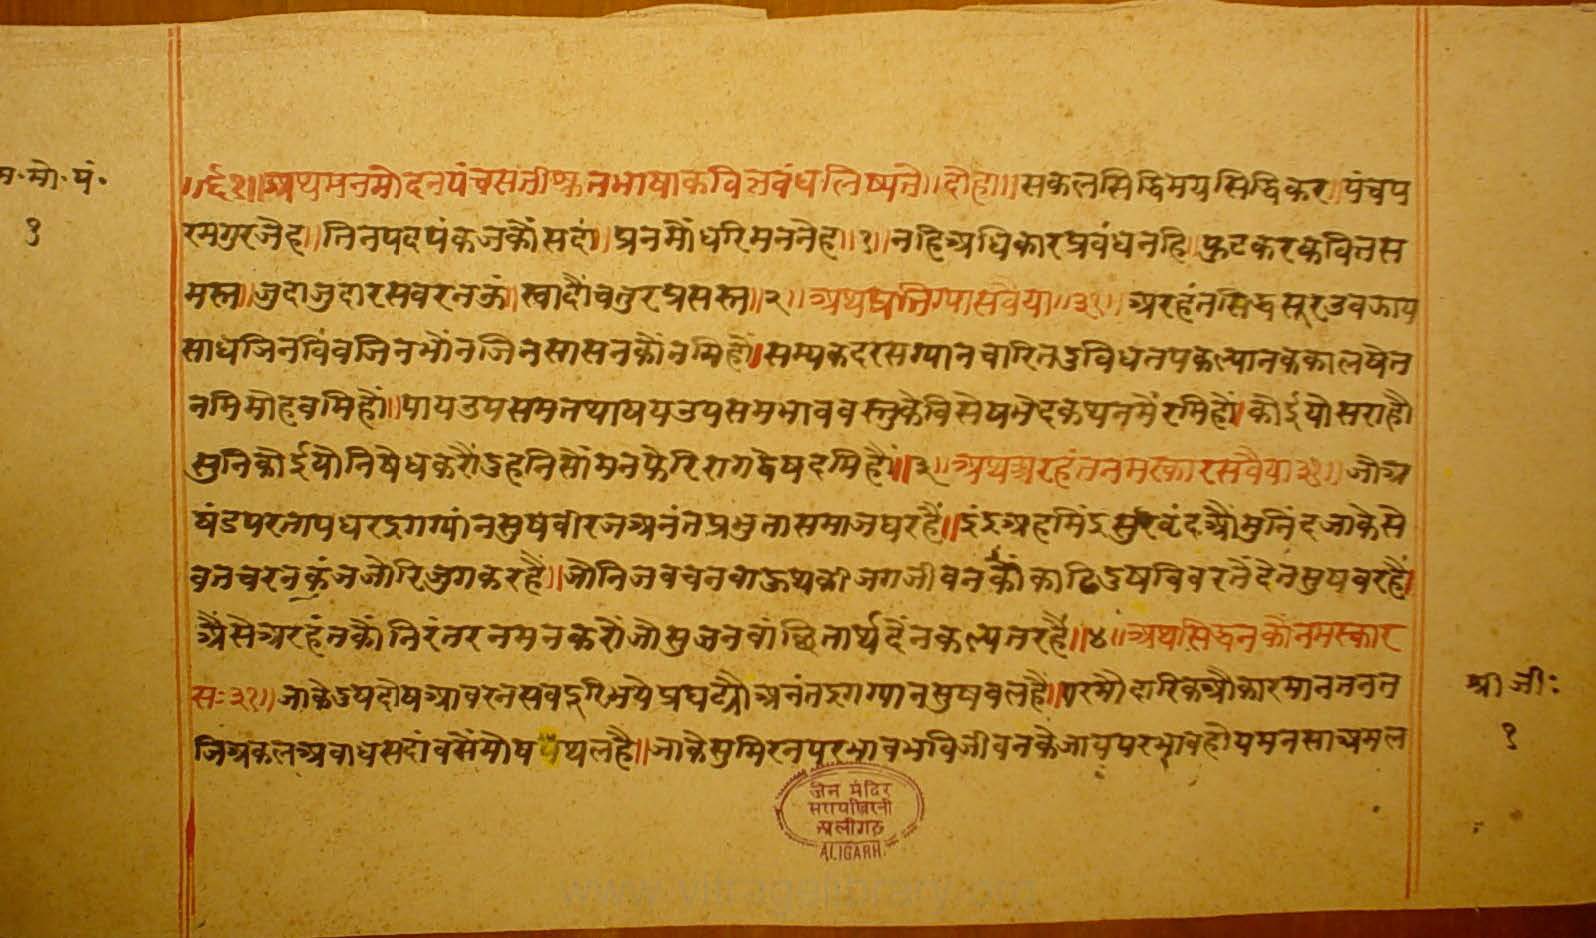 म॰मो॰पं॰
१
॥र्द०॥अथमनमोदनपंचसतीकृतभाषाकवित्तबंधलिष्यते॥दोहा॥सकलसिद्धिमयसिद्धिकर।पंचप
रमगुरजेह॥तिनपदपंकजकौंसदा॥प्रनमौंधरिमननेह॥१॥नहिअधिकारप्रबंधनहि।फुटकरकवित्तस
मस्त॥जुदाजुदारसवरनऊं।स्वादौंचतुरप्रसस्त॥२॥अथप्रतिग्यासवैया॥३१॥अरहंतसिद्धसूरउवझाय
साधजिनबिंबजिनभौंनजिनसासनकौंनमिहौं॥सम्यकदरसग्यानचारितदुविधतपकल्यानककालषेत
नमिमोहवमिहौं॥पायउपसमतथाषयउपसमभाववस्तुकेविसेषभेदकथनमैंरमिहौं।कोईयोसराहौ
सुनिकोईयौनिषेधकरौंदुहनिसौंमनफेरिरागद्वेषदमिहौं॥३॥अथअरहंतनमस्कारसवैया३१॥जोअ
षंडपरतापधरदृगग्यांनसुषवीरजअनंतप्रभुतासमाजघरहैं॥इंदअहमिंदसुरवंदऔमुनिंदजाकेसे
वतचरनकंजजोरिजुगकरहैं॥जोनिजवचनवाऊथकीजगजीवनकौंकाढिदुषविवरतैंदेतसुषवरहैं।
अैसेअरहंतकौंनिरंतरनमनकरौंजोसुजनवांछितार्थदेंनकल्पतरहै॥४॥अथसिद्धनकौंनमस्कार
सः३१॥जाकेदुषदोषआवरनसवदूरिभयेप्रघट्यौअनंतदृगग्यानसुषवलहै॥परमौदारिकऔकारमानतनत
जिअकलअवाधसदांवसैंमोषथलहै॥जाकेसुमिरनपरभावभविजीवनकेजापपरभावहोयमनसाअमल
श्रीजीः
१
जैन मंदिर
अलीगढ
ALIGARH.